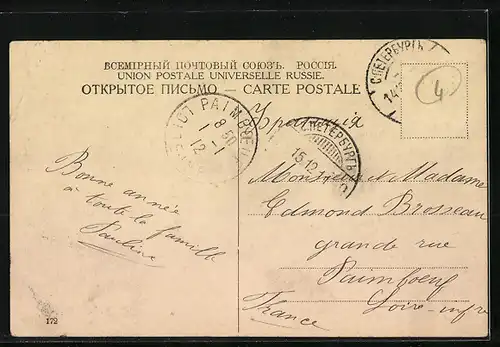 ВСЕМІРНЫЙ ПОЧТОВЫЙ СОЮЗЪ. РОССІЯ.
UNION POSTALE UNIVERSELLE RUSSIE.
ОТКРЫТОЕ ПИСЬМО — CARTE POSTALE
С.ПЕТЕРБУРГЪ
14
4
PAIMBŒUF
8 50
1 - 1
12
Франція
С.ПЕТЕРБУРГЪ
15.12
Bonne année
à toute la famille
Pauline
Monsieur et Madame
Edmond Brosseau
grande rue
Paimboeuf
France Loire-infre
172